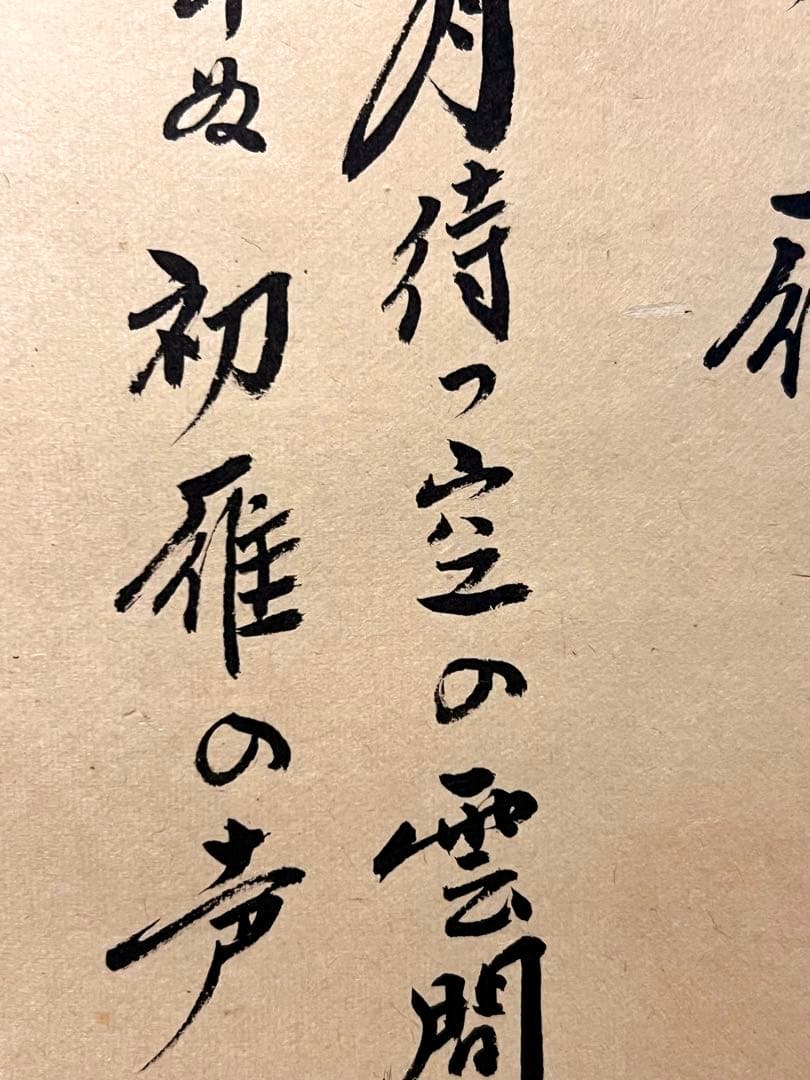 雁
月待つ空の雲間
ぬ 初雁の声